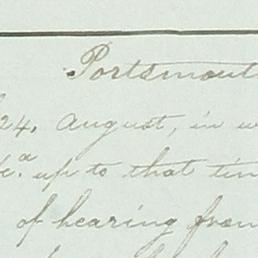 Portsmouth
24. August, in
up to that tim
of hearing from